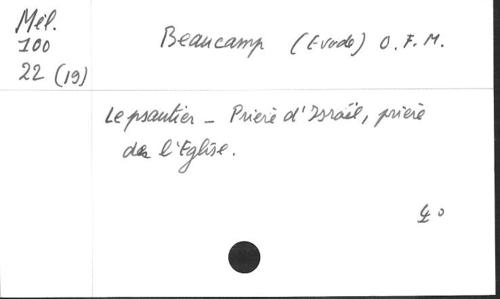 Mél.
100
22 (19)
Beaucamp (Evode) O.F.M.
Le psautier - Prière d'Israël, prière
de l'Eglise.